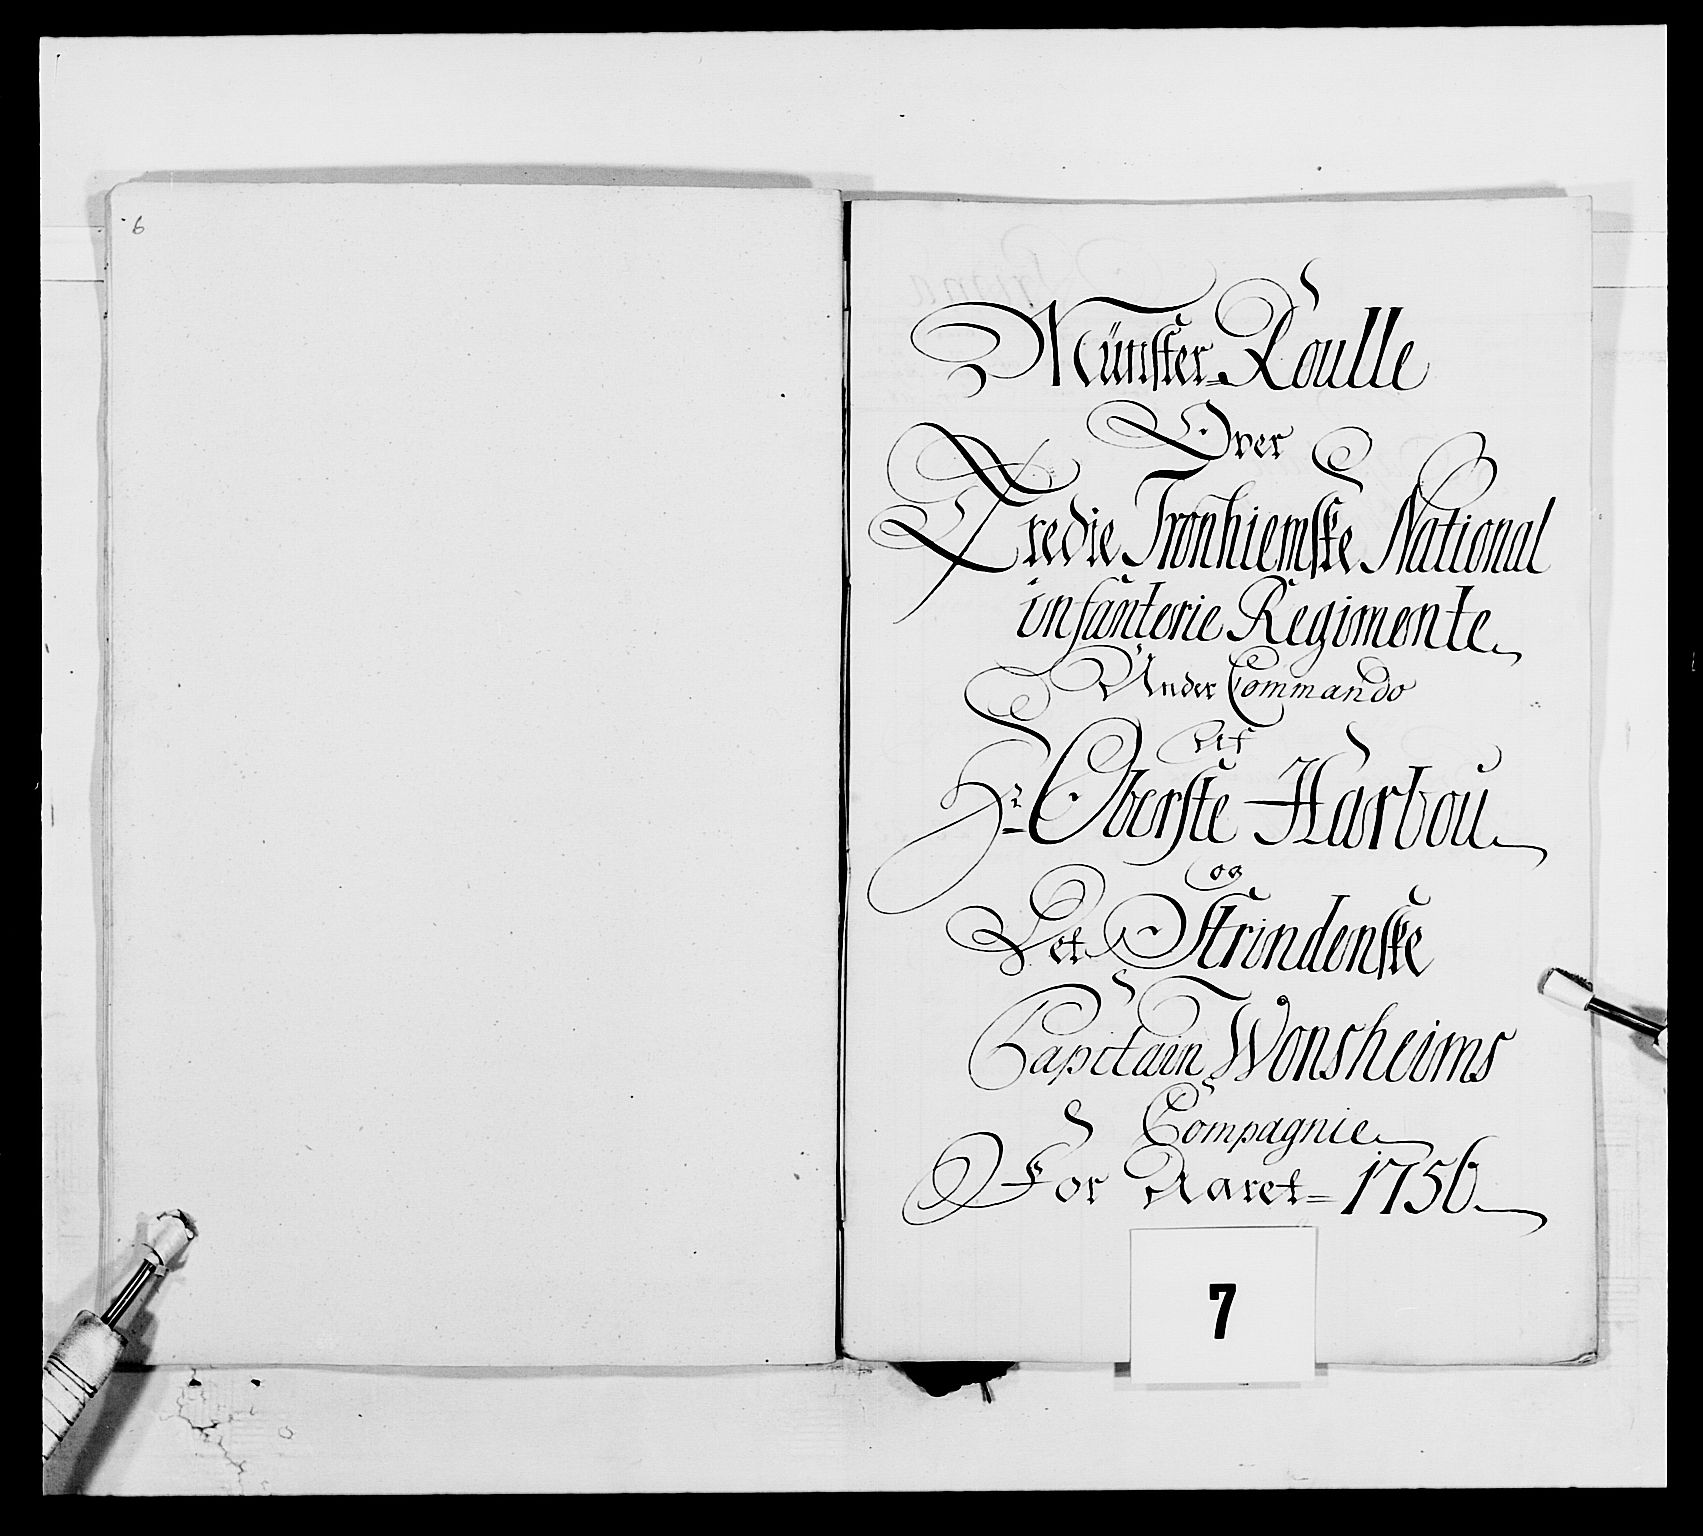 6
Münster=Roulle
Over
Tredie Tronhiemske National
infanterie Regimente
Under Commando
af
Hr Oberste Harbou
og
Det Strindenske
Capitain Wonsheims
Compagnie
For Aaret=1756
7